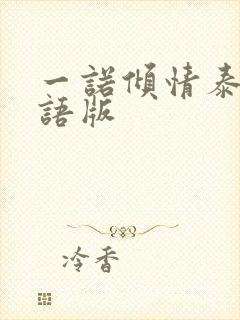 一諾傾情泰
語版
冷香